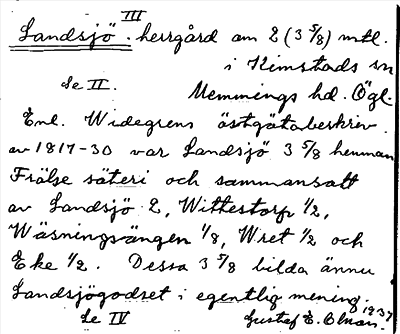 III
Landsjö. herrgård om 2 (3 5/8) mtl.
i Kimstads sn
Se II. Memmings hd. Ögl.
Enl. Widegrens östgötabeskriv.
av 1817-30 var Landsjö 3 5/8 hemman
Frälse säteri och sammansatt
av Landsjö 2, Wittestorp 1/2,
Wäsningsängen 1/8, Wret 1/2 och
Eke 1/2. Dessa 3 5/8 bilda ännu
Landsjögodset i egentlig mening.
Se IV Gustaf E. Elman. 1937